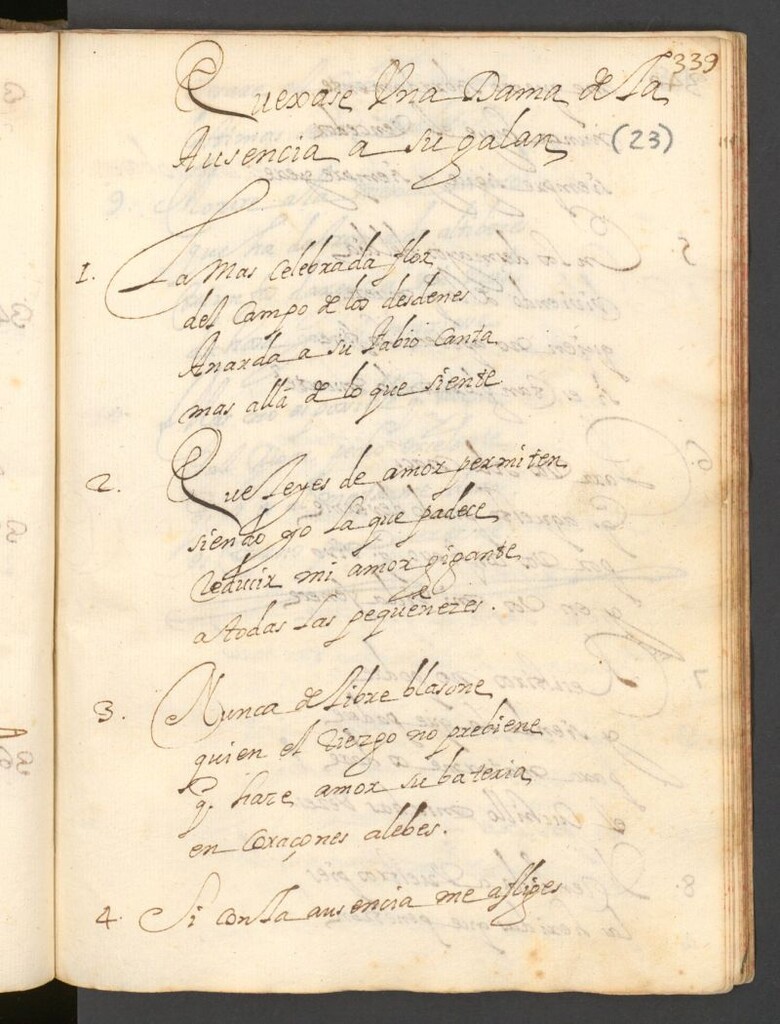 339
Quexase Una Dama de la
Ausencia a su galan
(23)
1. La mas celebrada flor
del campo de los desdenes
Anarda a su Fabio canta
mas allá de lo que siente
2. Que leyes de amor permiten
siendo yo la que padece
reducir mi amor gigante
a todas las pequeñezes.
3. Nunca de libre blasone
quien el riezgo no prebiene
q. haze amor su bateria
en coraçones alebes.
4. Si con la ausencia me afliges